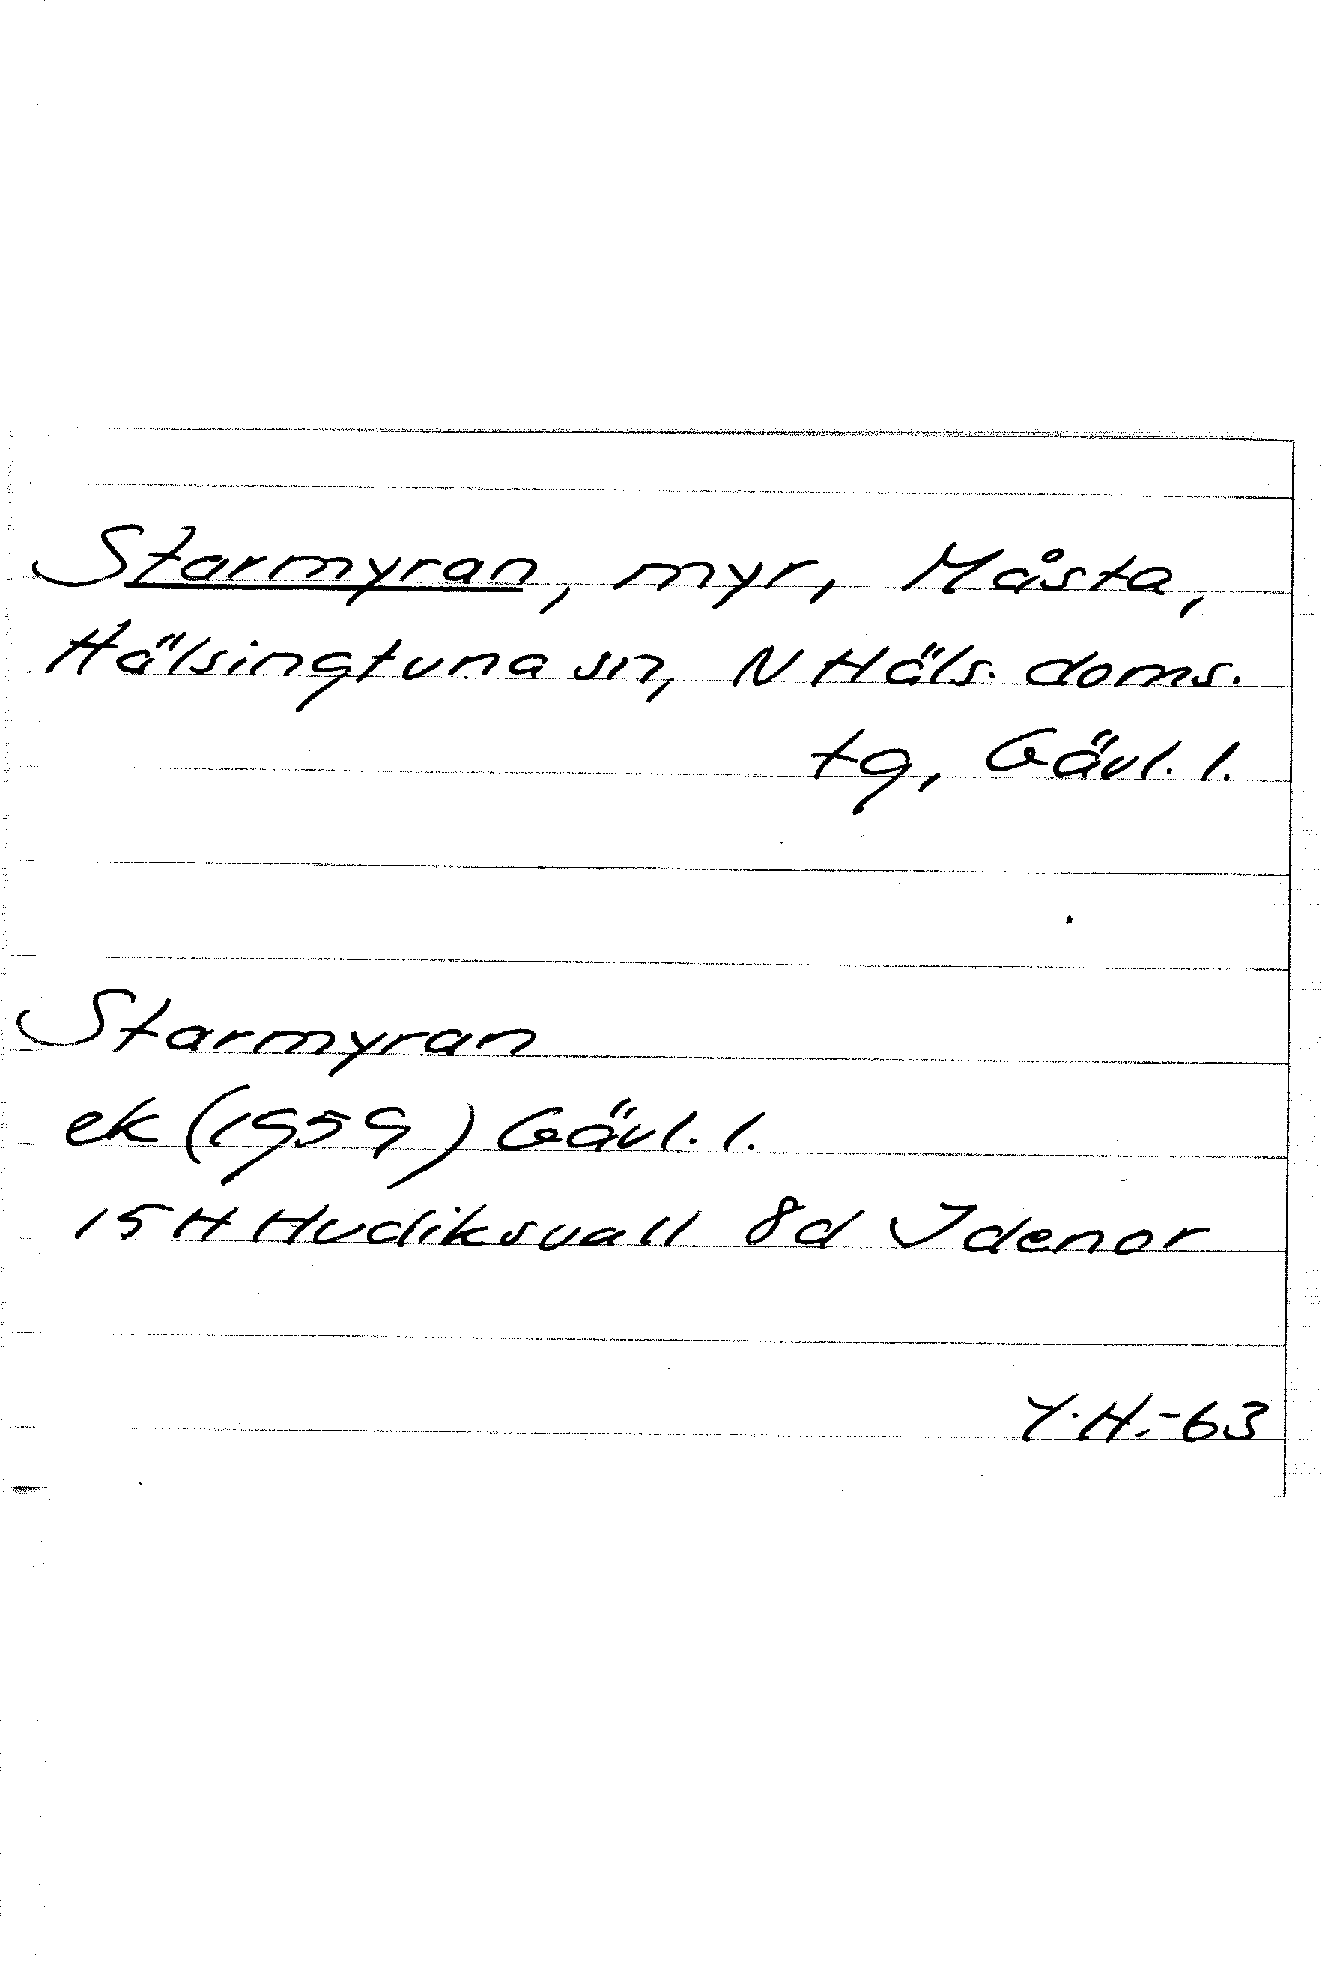 Starmyran, myr, Måsta,
Hälsingtuna sn, N Häls. doms.
tg, Gävl. l.
Starmyran
ek (1959) Gävl. l.
15 H Hudiksvall 8d Idenor
Y.H.-63